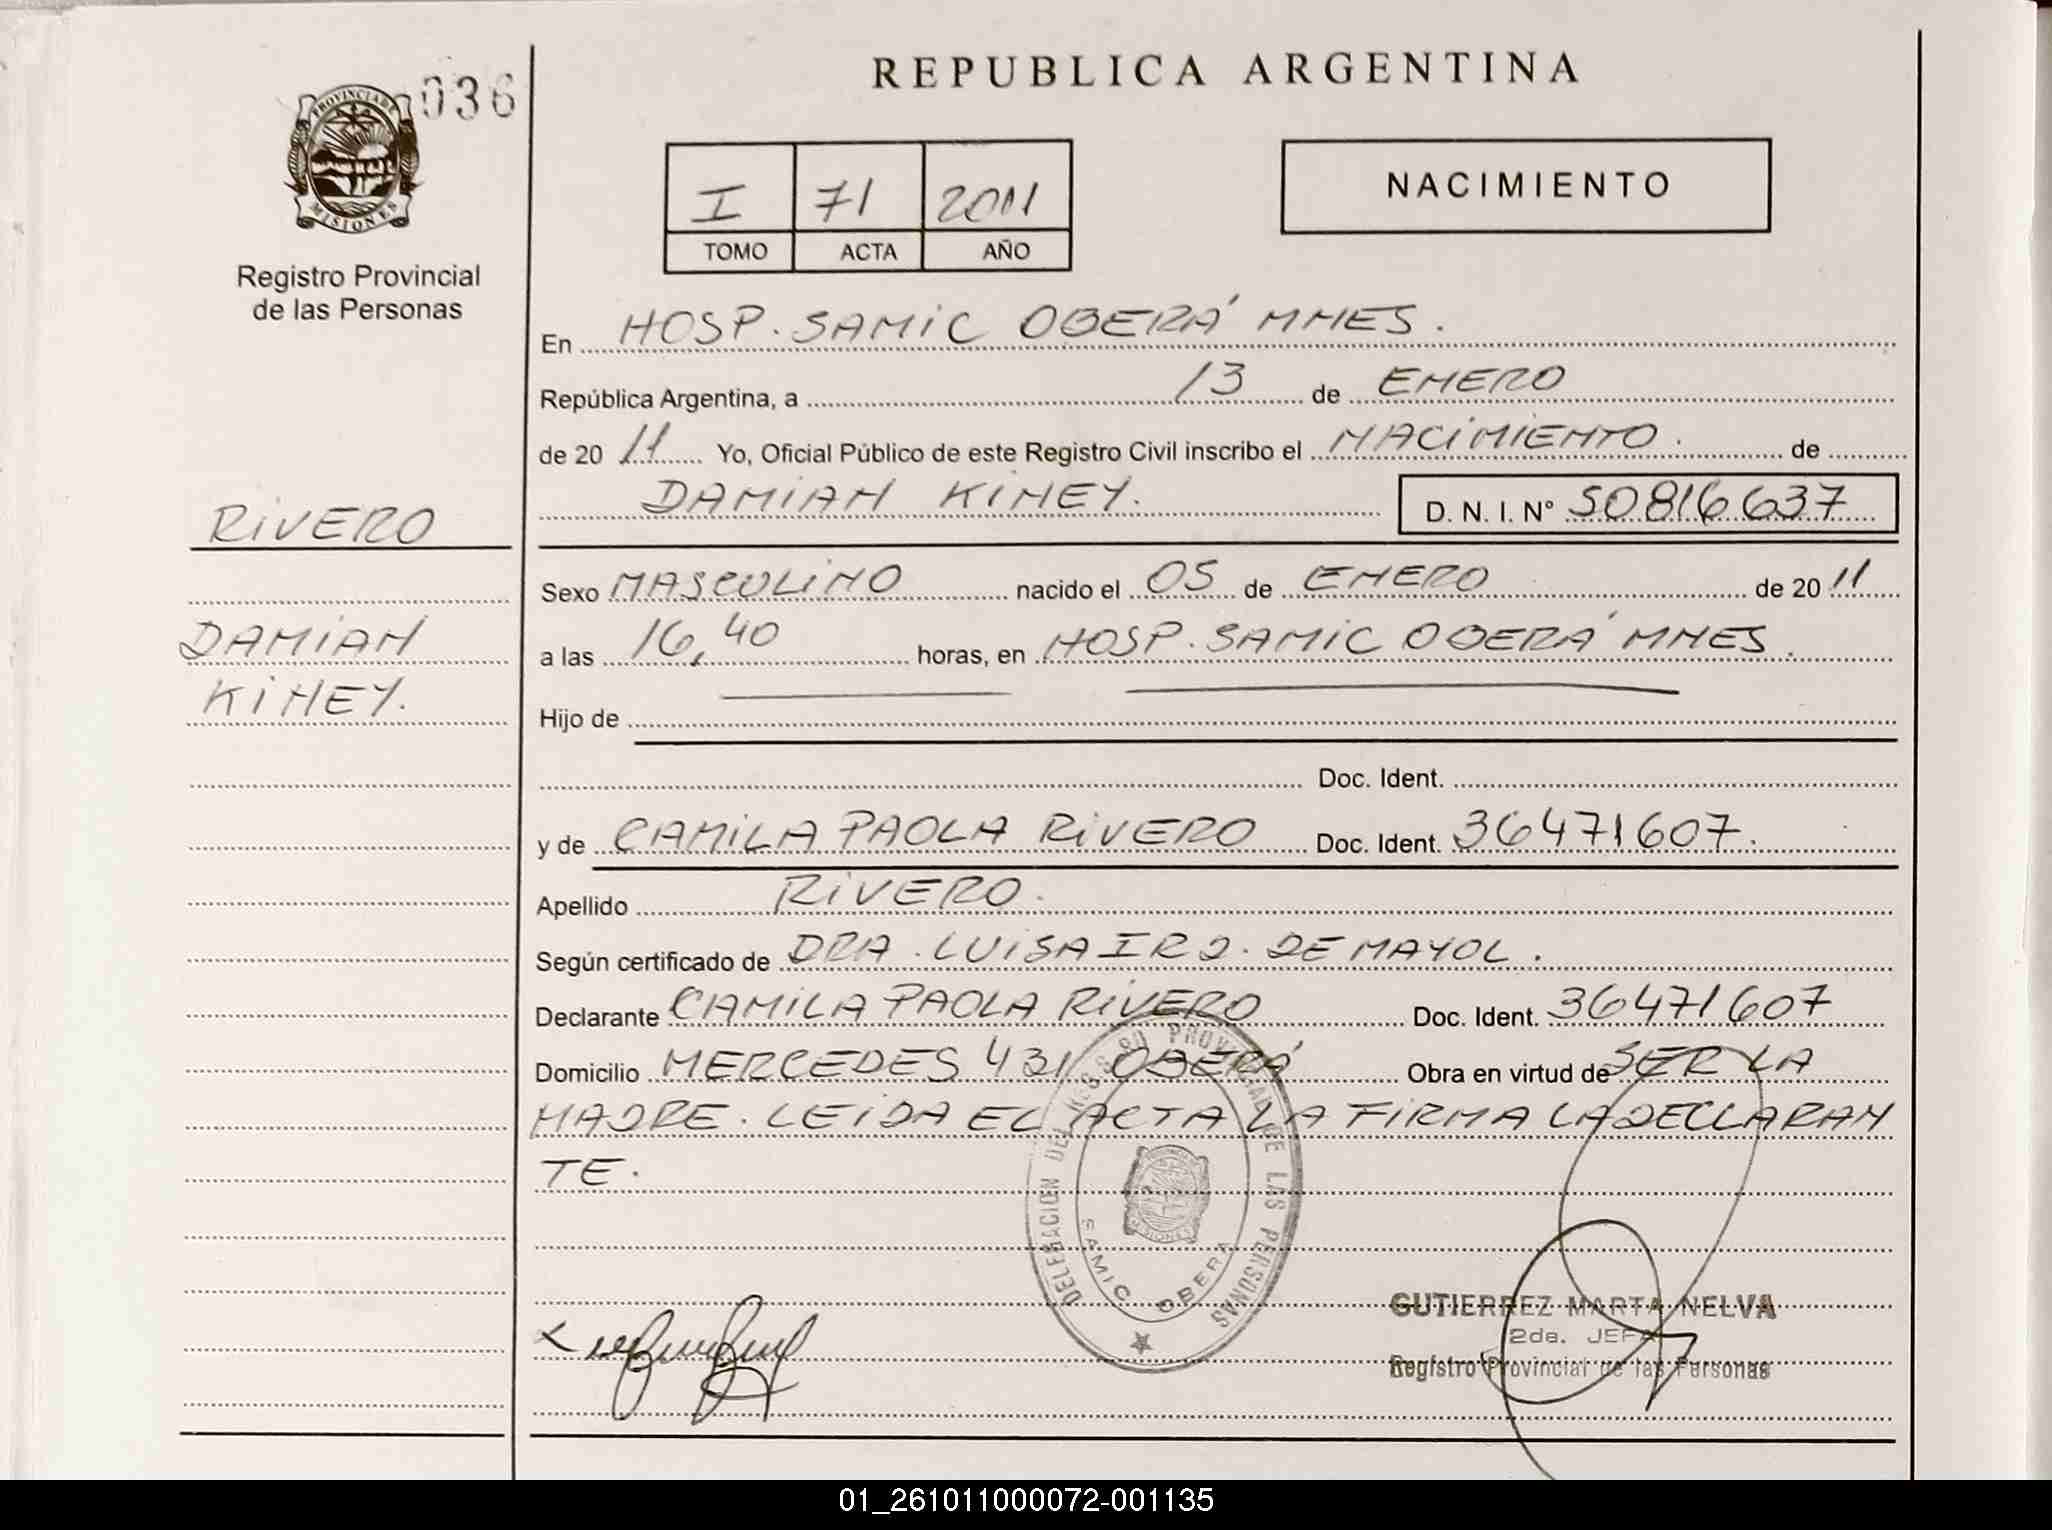 REPUBLICA ARGENTINA
036
PROVINCIA DE
MISIONES
Registro Provincial
de las Personas
I 71 2011
TOMO ACTA AÑO
NACIMIENTO
En HOSP. SAMIC OBERÁ MNES.
República Argentina, a 13 de ENERO
de 20 11 Yo, Oficial Público de este Registro Civil inscribo el NACIMIENTO. de
DAMIAN KINEY. D. N. I. N° 50816637
RIVERO
DAMIAN
KINEY.
Sexo MASCULINO nacido el 05 de ENERO de 20 11
a las 16,40 horas, en HOSP. SAMIC OBERÁ MNES.
Hijo de
Doc. Ident.
y de CAMILA PAOLA RIVERO Doc. Ident. 36471607.
Apellido RIVERO.
Según certificado de DRA. LUISA DE MAYOL.
Declarante CAMILA PAOLA RIVERO Doc. Ident. 36471607
Domicilio MERCEDES 431 OBERÁ Obra en virtud de SER LA
MADRE. LEIDA EL ACTA LA FIRMA LA DECLARAN
TE.
DELEGACION DEL REGISTRO PROVINCIAL DE LAS PERSONAS
SAMIC OBERA
GUTIERREZ MARTA NELVA
2da. JEFA
Registro Provincial de las Personas
01_261011000072-001135